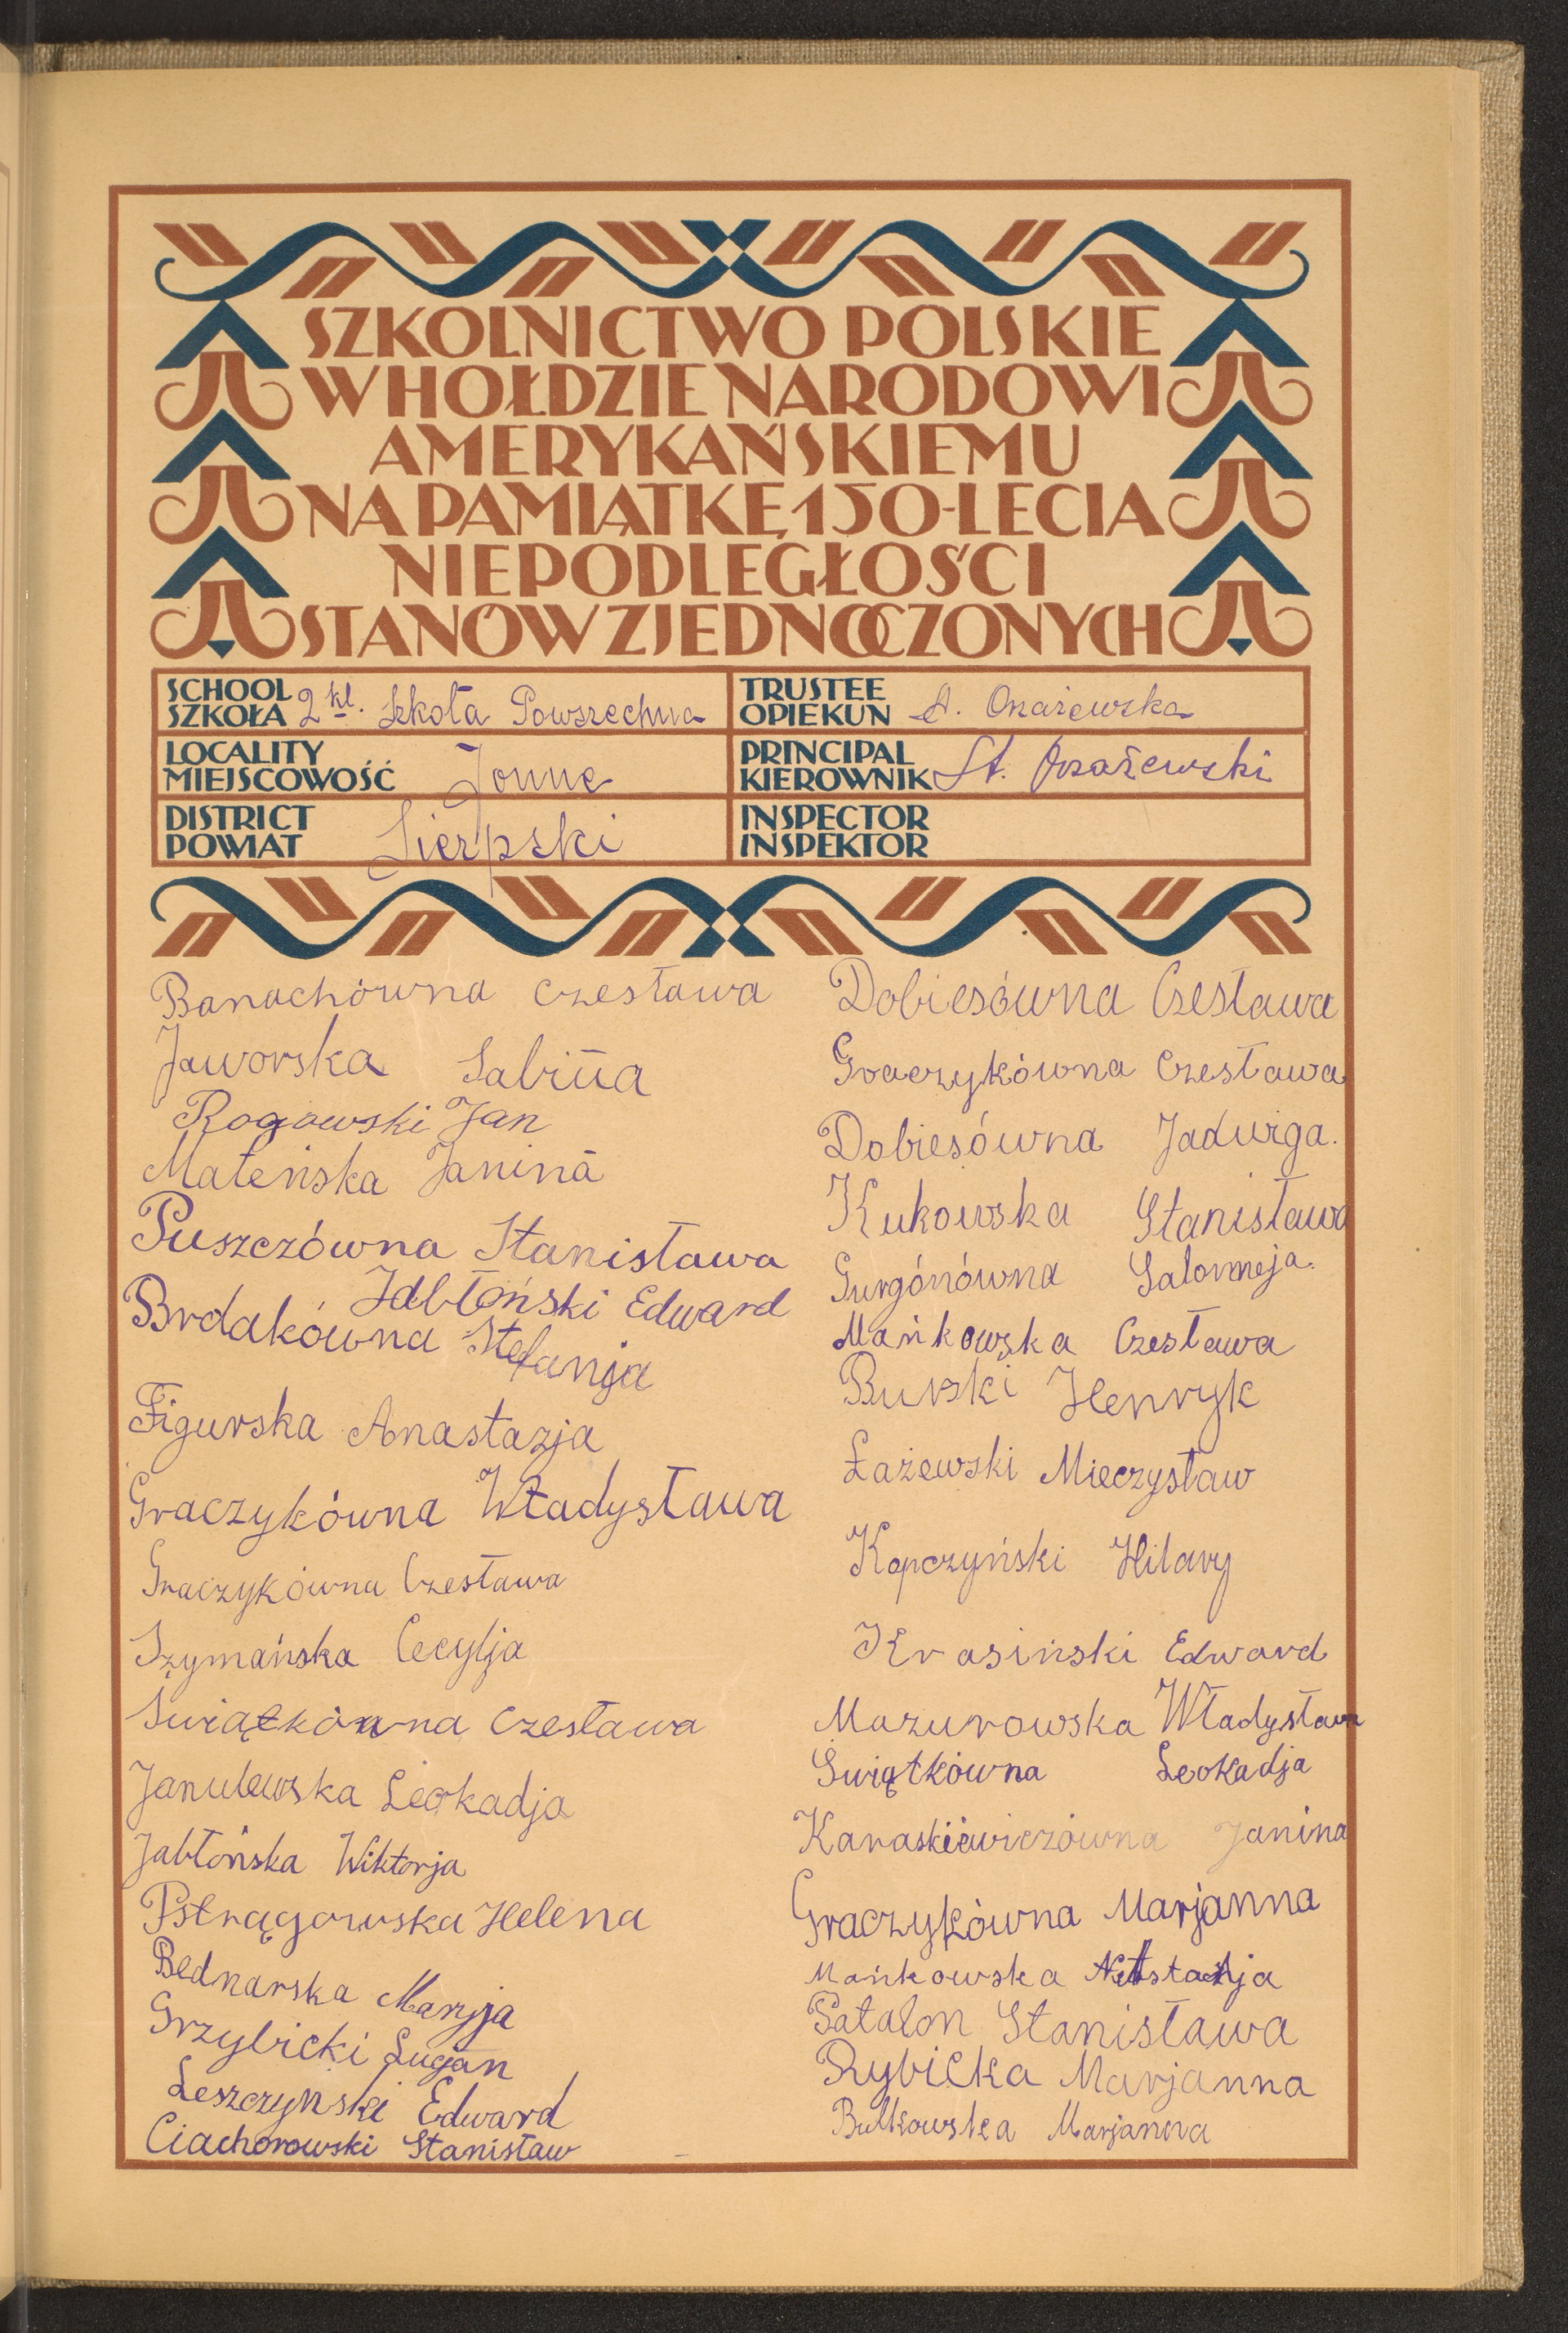 SZKOLNICTWO POLSKIE
W HOŁDZIE NARODOWI
AMERYKAŃSKIEMU
NA PAMIĄTKĘ 150-LECIA
NIEPODLEGŁOŚCI
STANÓW ZJEDNOCZONYCH
SCHOOL
SZKOŁA 2 kl. Szkoła Powszechna
TRUSTEE
OPIEKUN A. Ożarzewska
LOCALITY
MIEJSCOWOŚĆ Jonne
PRINCIPAL
KIEROWNIK St.
DISTRICT
POWIAT Sierpski
INSPECTOR
INSPEKTOR
Banachówna Czesława
Jaworska Sabina
Rogowski Jan
Mateńska Janina
Puszczówna Stanisława
Jabłoński Edward
Brdakówna Stefanja
Figurska Anastazja
Graczykówna Władysława
Graczykówna Czesława
Szymańska Cecylja
Świątkówna Czesława
Janulewska Leokadja
Jabłońska Wiktorja
Pstrągowska Helena
Bednarska Maryja
Grzybicki Lugan
Leszczyński Edward
Ciachorowski Stanisław
Dobiesówna Czesława
Graczykówna Czesława
Dobiesówna Jadwiga.
Kukowska Stanisława
Gurgónówna Salomeja.
Mańkowska Czesława
Burski Henryk
Łażewski Mieczysław
Kopczyński Hilary
Krasiński Edward
Mazurowska Władysława
Świątkówna Leokadja
Karaskiewiczówna Janina
Graczykówna Marjanna
Mańkowska
Patalon Stanisława
Rybicka Marjanna
Bulkowska Marjanna